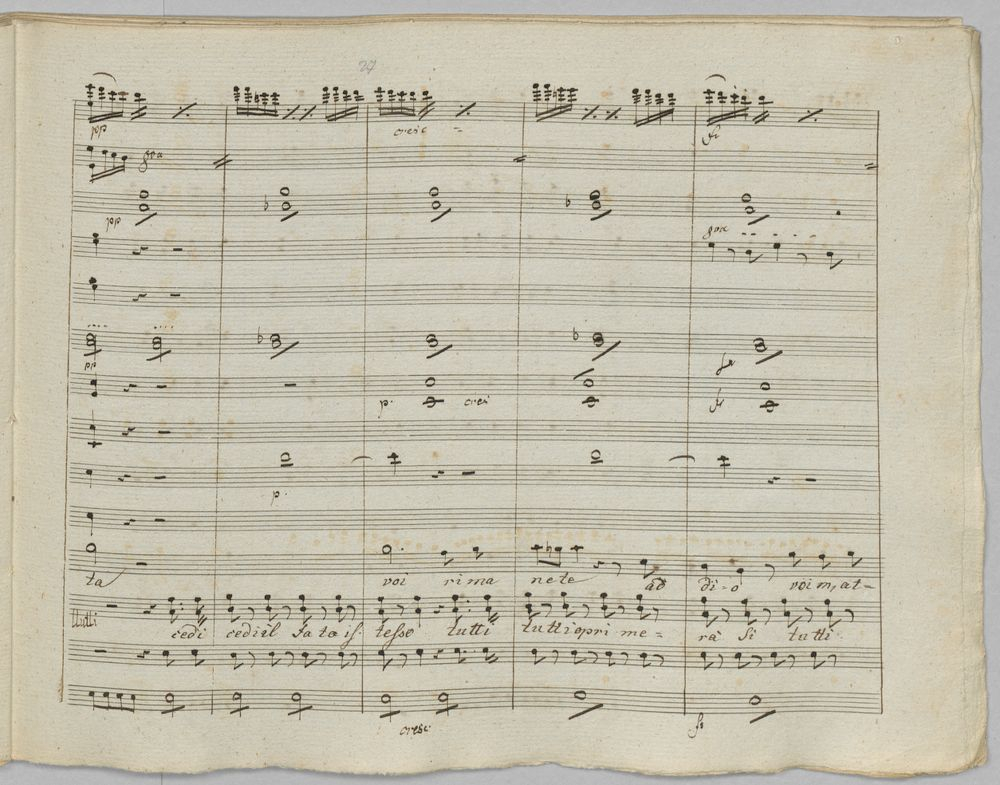 27
pp cresc - fr
8va
pp
8va
pp
p. cres fr
p.
ta voi rima nete ad di-o voi m,at-
tutti cedi cedi il fato is- tesso tutti tutti opri me- rà Si tutti
cresc fr